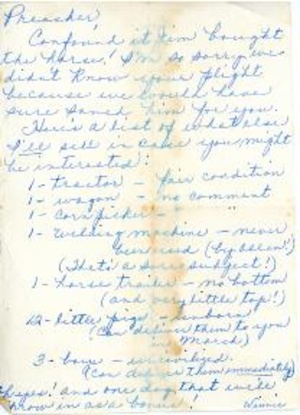 Preacher,
Confound it Jim bought
the horse! I'm so sorry, we
didn't know your plight
because we would have
sure saved him for you.
Here's a list of what else
I'll sell in case you might
be interested:
1 - tractor - fair condition
1 - wagon - no comment
1 - corn picker -
1 - welding machine - never
been used
(That's a sore subject!)
1 - horse trailer - no bottom
(and very little top!)
12 - little pigs - unborn
(Can deliver them to you
in March)
3 - boys - uncivilized.
(Can deliver them immediately)
and one dog that we'll
throw in as a bonus!
Winnie